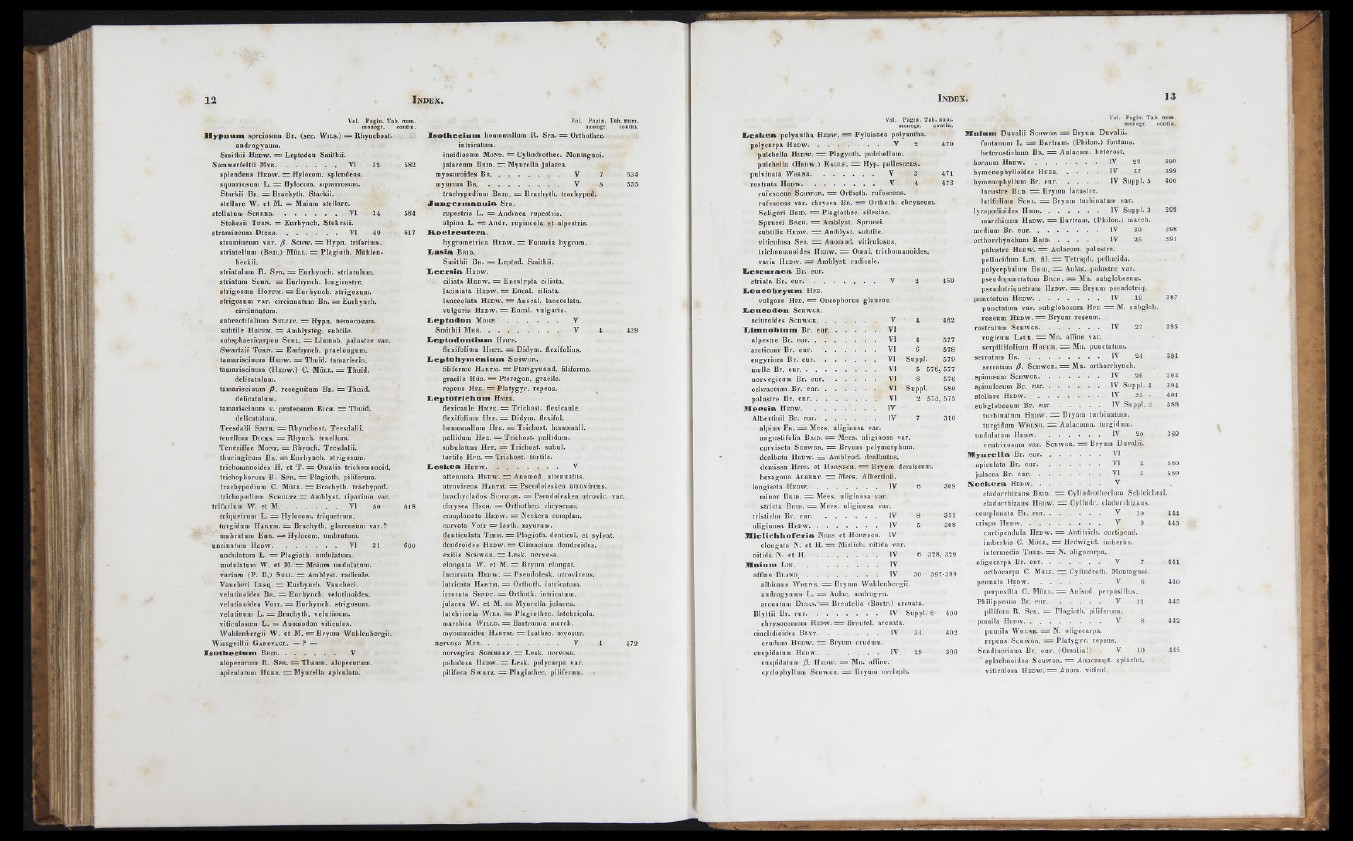 12
INDEX.
Vol. Pagin. Tab. num.
monogr. contin.
Hypnum speciosum BR. (sec. WILS.) = Rhynchost.
androgynum.
Smithii HEDW. = Leptodon Smithii.
Sommerfeltii MYR. . . . . . . . VI 12 582
splendens HEDW. = Hylocom. splendens.
squarrosum L. = Hylocom. squarrosum.
Starkii BR. = Brachyth. Starkii.
stellare W. et M. = Mnium stellare.
stellatum SCHREB. . . . . . . VI 14 584
Stokesii TURN. = Eurhynch. Stokesii.
stramineum DICKS. . . . . . . VI 49 617
stramineum var. β. SCHW. = Hypn. trifarium.
striatellum (BRID.) MÜLL. = Plagioth. Mühlen-
beckii.
striatulum R. SPR. = Eurhynch. striatulum.
striatum SCHR. = Eurhynch. longirostre.
strigosum HOFFM. = Eurhynch. strigosum.
strigosum var. circinnatum BR. = Eurhynch.
circinnatum.
subrectifolium SULLIV. = Hypn. nemorosum.
subtile HOFFM. = Amblysteg. subtile.
subsphaericarpon SCHL. = Limnob. palustre var.
Swartzii TURN. = Eurhynch. praelongum.
tamariscinum HEDW. = Thuid. tamariscin.
tamariscinum (HEDW.) C. MÜLL. = Thuid.
delicatulum.
tamariscinum β. recognitum BR. = Thuid.
delicatulum.
tamariscinum v. protensum RICH. = Thuid.
delicatulum.
Teesdalii SMITH. = Rhynchost. Teesdalii.
tenellum DICKS. = Rhynch. tenellum.
Teneriffae MONT. = Rhynch. Teesdalii.
thuringicum BR. = Eurhynch. strigosum.
trichomanoides H. et T. = Omalia trichomanoid.
trichophorum R. SPR. = Plagioth. piliferum.
trachypodium C. MÜLL. = Brachyth. trachypod.
trichopodium SCHULTZ = Amblyst. riparium var.
trifarium W. et M. . . . . . . VI 50 618
triquetrum L. = Hylocom. triquetrum.
turgidum HARTM. = Brachyth. glareosum var.?
umbratum EHR. = Hylocom. umbratum.
uncinatum HEDW. . . . . . . VI 31 600
undulatum L. = Plagioth. undulatum.
undulatum W. et M. = Mnium undulatum.
varium (P. B.) SULL. = Amblyst. radicale.
Vaucheri LESQ. = Eurhynch. Vaucheri.
velutinoides BR. = Eurhynch. velutinoides.
velutinoides VOIT. = Eurhynch. strigosum.
velutinum L. = Brachyth. velutinum.
viticulosum L. = Anomodon viticulos.
Wahlenbergii W. et M. = Bryum Wahlenbergii.
Wimgrillii GAROVAGL. = ? =
Isothecium BRID. . . . . . . V
alopecurum R. SPR. = Thamn. alopecurum.
apiculatum HUEB. = Myurella apiculata.
Vol. Pagin. Tab. num.
monogr. contin.
Isothecium homomallum R. SPR. = Orthothec.
intricatum.
insidiosum MONT. = Cylindrothec. Montagnei.
julaceum BRID. = Myurella julacea.
myosuroides BR. . . . . . . . V 7 534
myurum BR. . . . . . . . V 5 533
trachypodium BRID. = Brachyth. trachypod.
Jungermannia SPR.
rupestris L. = Andreaea rupestris.
alpina L. = Andr. rupincola et alpestris.
Koelreutera.
hygrometrica HEDW. = Funaria hygrom.
Lasia BRID.
Smithii BR. = Leptod. Smithii.
Leersia HEDW.
ciliata HEDW. = Encalypta ciliata.
laciniata HEDW. = Encal. ciliata.
lanceolata HEDW. = Anacal. lanceolata.
vulgaris HEDW. = Encal. vulgaris.
Leptodon MOHR . . . . . . V
Smithii MHR. . . . . . . . V 1 439
Leptodontium HMPE.
flexifolium HMPE. = Didym. flexifolius.
Leptohymenium SCHWGR.
filiforme HARTM. = Pterigynand. filiforme.
gracile HÜB. = Pterogon. gracile.
repens HPE. = Platygyr. repens.
Leptotrichum HMPE.
flexicaule HMPE. = Trichost. flexicaule.
flexifolium HPE. = Didym. flexifol.
homomallum HPE. = Trichost. homomall.
pallidum HPE. = Trichost. pallidum.
subulatum HPE. = Trichost. subul.
tortile HPE. = Trichost. tortile.
Leskea HEDW. . . . . . . . V
attenuata HEDW. = Anomod. attenuatus.
atrovirens HARTM. = Pseudoleskea atrovirens.
brachyclados SCHWGR. = Pseudoleskea atrovir. var.
chrysea HSCH. = Orthothec. chryseum.
complanata HEDW. = Neckera complan.
curvata VOIT = Isoth. myurum.
denticulata TIMM. = Plagioth. denticul. et sylvat.
dendroides HEDW. = Climacium dendroides.
exilis SCHWGR. = Lesk. nervosa.
elongata W. et M. = Bryum elongat.
incurvata HEDW. = Pseudolesk. atrovirens.
intricata HARTM. = Orthoth. intricatum.
irrorata SENDT. = Orthoth. intricatum.
julacea W. et M. = Myurella julacea.
latebricola WILS. = Plagiothec. latebricola.
marchica WILLD. = Bartramia march.
myosuroides HARTM. = Isothec. myosur.
nervosa MYR. . . . . . . . V 1 472
norvegica SOMMERF. = Lesk. nervosa.
paludosa HEDW. = Lesk. polycarpa var.
pilifera SWARZ. = Plagiothec. piliferum.
INDEX.
13
Vol. Pagin. Tab. num.
monogr. contin.
Leskea polyantha HEDW. = Pylaisaea polyantha.
polycarpa HEDW. . . . . . . V 2 470
pulchella HEDW. = Plagyoth. pulchellum.
pulchella (HEDW.) KAULF. = Hyp. pallescens.
pulvinata WHLNB. . . . . . . V 3 471
rostrata HEDW. . . . . . . V 4 473
rufescens SCHWGR. = Orthoth. rufescens.
rufescens var. chrysea BR. = Orthoth. chryseum.
Seligeri BRID. = Plagiothec. silesiac.
Sprucei BRCH. = Amblyst. Sprucei.
subtilis HEDW. = Amblyst. subtile.
viticulosa SPR. = Anomod. viticulosus.
trichomanoides HEDW. = Omal. trichomanoides.
varia HEDW. = Amblyst. radicale.
Lescuraea BR. eur.
striata BR. eur. . . . . . . . V 2 459
Leucobryum HPE.
vulgare HPE. = Oncophorus glaucus.
Leucodon SCHWGR.
sciuroides SCHWGR. . . . . . V 4 462
Limnobium BR. eur. . . . . . VI
alpestre BR. eur. . . . . . . VI 4 577
arcticum BR. eur. . . . . . . VI 6 578
eugyrium BR. eur. . . . . . . VI Suppl. 579
molle BR. eur. . . . . . . . VI 5 576, 577
norvegicum BR. eur. . . . . . VI 8 576
ochraceum BR. eur. . . . . . VI Suppl. 580
palustre BR. eur. . . . . . . VI 2 573, 575
Meesia HEDW. . . . . . . . IV
Albertinii BR. eur. . . . . . . IV 7 310
alpina FK. = Mees. uliginosa var.
angustifolia BRID. = Mees. uliginosa var.
curviseta SCHWGR. = Bryum polymorphum.
dealbata HEDW. = Amblyod. dealbatus.
demissa HPPE. et HORNSCH. = Bryum demissum.
hexagona ALBERT. = Mees. Albertinii.
longiseta HEDW. . . . . . . IV 6 309
minor BRID. = Mees. uliginosa var.
stricta BRID. = Mees. uliginosa var.
tristicha BR. eur. . . . . . . IV 8 311
uliginosa HEDW. . . . . . . IV 5 308
Mielichhoferia NEES et HORNSCH. IV
elongata N. et H. = Mielich. nitida var.
nitida N. et H. . . . . . . . IV 6 328, 329
Mnium LIN. . . . . . . . IV
affine BLAND. . . . . . . . IV 30 397-399
albicans WHLNB. = Bryum Wahlenbergii.
androgynum L. = Aulac. androgyn.
arcuatum DICKS. = Breutelia (Bartr.) arcuata.
Blyttii BR. eur. . . . . . . . IV Suppl. 6 400
chrysocomum HEDW. = Breutel. arcuata.
cinclidioides BLYT. . . . . . . IV 34 402
crudum HEDW. = Bryum crudum.
cuspidatum HEDW. . . . . . . IV 29 396
cuspidatum β. HEDW. = Mn. affine.
cyclophyllum SCHWGR. = Bryum cycloph.
Vol. Pagin. Tab. num.
monogr. contin.
Mnium Duvalii SCHWGR. = Bryum Duvalii.
fontanum L. = Bartram. (Philon.) fontana.
heterostichum BR. = Aulacom. heterost.
hornum HEDW. . . . . . . IV 22 390
hymenophylloides HÜEB. . . . . IV 17 399
hymenophyllum BR. eur. . . . . IV Suppl. 5 400
lacustre BLD. = Bryum lacustre.
latifolium SCHL. = Bryum turbinatum var.
lycopodioides HOOK. . . . . . IV Suppl. 3 393
marchicum HEDW. = Bartram. (Philon.) march.
medium BR. eur. . . . . . . IV 30 398
orthorrhynchum BRID. . . . . . IV 23 391
palustre HEDW. = Aulacom. palustre.
pellucidum LIN. fil. = Tetraph. pellucida.
polycephalum BRID. = Aulac. palustre var.
pseudopunctatum BRCH. = Mn. subglobosum.
pseudotriquetrum HEDW. = Bryum pseudotriq.
punctatum HEDW. . . . . . . IV 19 387
punctatum var. subglobosum HPE = M. subglob.
roseum HEDW. = Bryum roseum.
rostratum SCHWGR. . . . . . IV 27 395
rugicum LAUR. = Mn. affine var.
serpillifolium HOFFM. = Mn. punctatum.
serratum BR. . . . . . . . IV 24 391
serratum β. SCHWGR. = Mn. orthorrhynch.
spinosum SCHWGR. . . . . . . IV 26 393
spinulosum BR. eur. . . . . . IV Suppl. 4 394
stellare HEDW. . . . . . . IV 33 401
subglobosum BR. eur. . . . . . IV Suppl. 2 388
turbinatum HEDW. = Bryum turbinatum.
turgidum WHLNB. = Aulacomn. turgidum.
undulatum HEDW. . . . . . . IV 20 389
ventricosum var. SCHWGR. = Bryum Duvalii.
Myurella BR. eur. . . . . . . VI
apiculata BR. eur. . . . . . . VI 4 560
julacea BR. eur. . . . . . . . VI 3 560
Neckera HEDW. . . . . . . V
cladorrhizans BRID. = Cylindrothecium Schleicheri.
cladorrhizans HEDW. = Cylindr. cladorrhizans.
complanata BR. eur. . . . . . V 10 444
crispa HEDW. . . . . . . . V 9 443
curtipendula HEDW. = Antitrich. curtipend.
imberbis C. MÜLL. = Hedwigid. imberbe.
intermedia THED. = N. oligocarpa.
oligocarpa BR. eur. . . . . . V 7 441
orthocarpa C. MÜLL. = Cylindroth. Montagnei.
pennata HEDW. . . . . . . V 6 440
perpusilla C. MÜLL. = Anisod. perpusillus.
Philippeana BR. eur. . . . . . V 11 445
pilifera R. SPR. = Plagioth. piliferum.
pumila HEDW. . . . . . . . V 8 442
pumila WHLNB. = N. oligocarpa.
repens SCHWGR. = Platygyr. repens.
Sendtneriana BR. eur. (Omalia!) . V 10 445
splachnoides SCHWGR. = Anacampt. splachn.
viticulosa HEDW. = Anom. viticul.